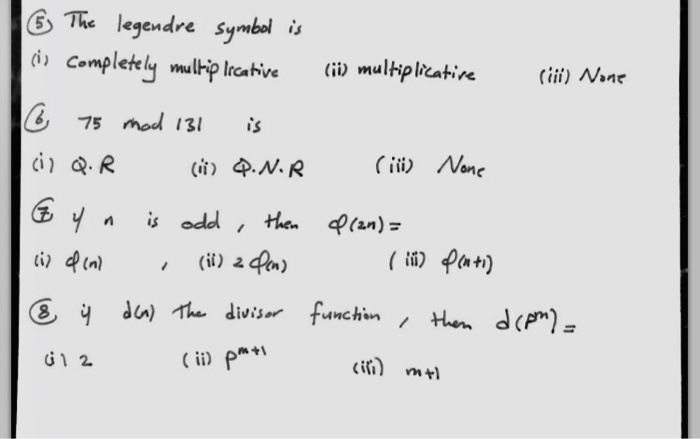 (5) The legendre symbol is
(i) Completely multiplicative (ii) multiplicative (iii) None
(6) 75 mod 131 is
(i) Q.R (ii) Q.N.R (iii) None
(7) if n is odd, then φ(2n)=
(i) φ(n) , (ii) 2φ(n) (iii) φ(n+1)
(8) if d(n) The divisor function, then d(p^m) =
(i) 2 (ii) p^m+1 (iii) m+1